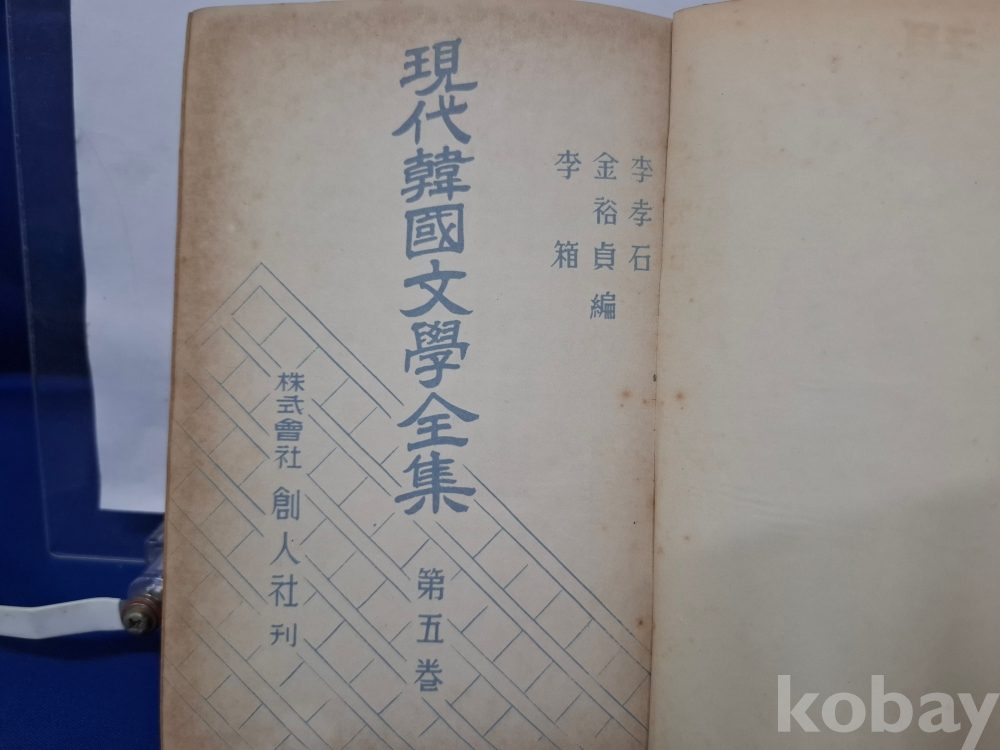 李孝石
金裕貞 編
李箱
現代韓國文學全集 第五巻
株式會社 創人社刊
kobay